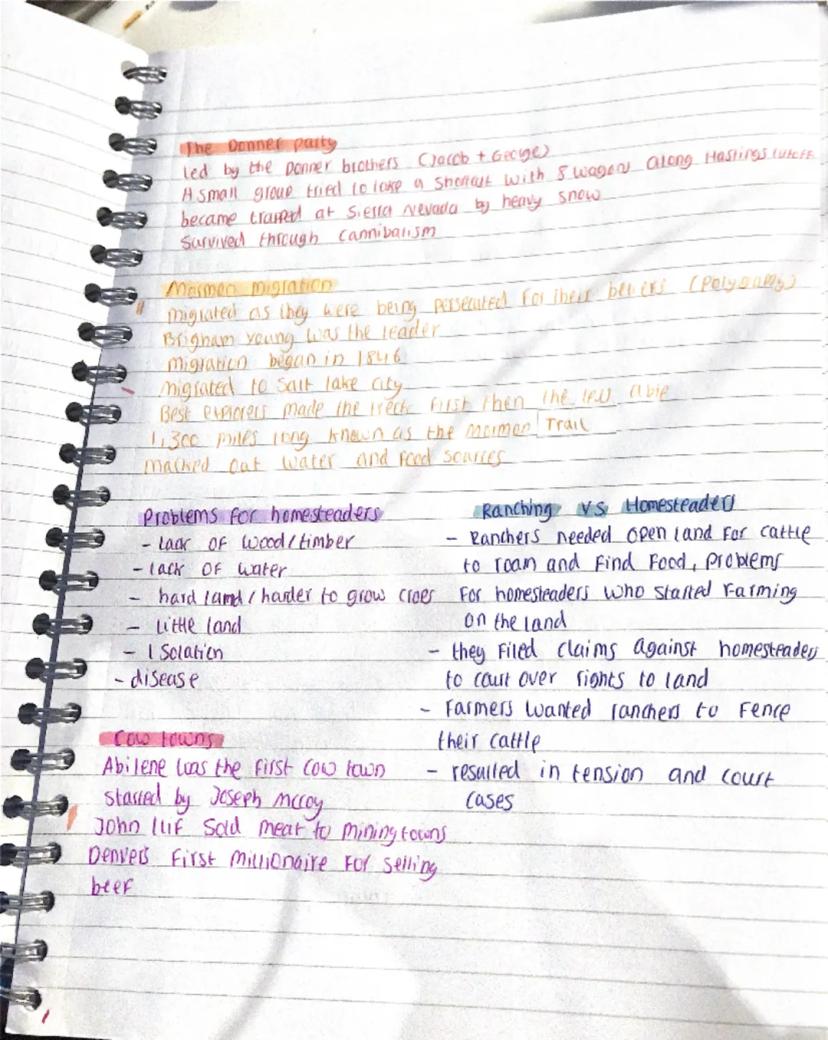 The Donner party
Led by the Donner brothers (Jacob + George)
A small group tried to take a shortcut with 8 wagons along Hastings cutoff
became trapped at Sierra Nevada by heavy snow
Survived through cannibalism
Mormon migration
migrated as they were being persecuted for their beliefs (Polygamy)
Brigham young was the leader
Migration began in 1846
Migrated to Salt lake city
Best explorers made the treck first then the less able
1,300 miles long known as the mormon Trail
marked out water and food sources
Problems for homesteaders
- lack of wood/timber
- lack of water
- hard land/harder to grow crops
- little land
- Isolation
- disease
Ranching VS Homesteaders
- Ranchers needed open land for cattle
to roam and find food, problems
for homesteaders who started farming
on the land
- they filed claims against homesteaders
to court over rights to land
- Farmers wanted ranchers to fence
their cattle
- resulted in tension and court
cases
Cow towns
Abilene was the first cow town
started by Joseph mccoy
John Ilif sold meat to mining towns
Denvers first millionaire for selling
beef